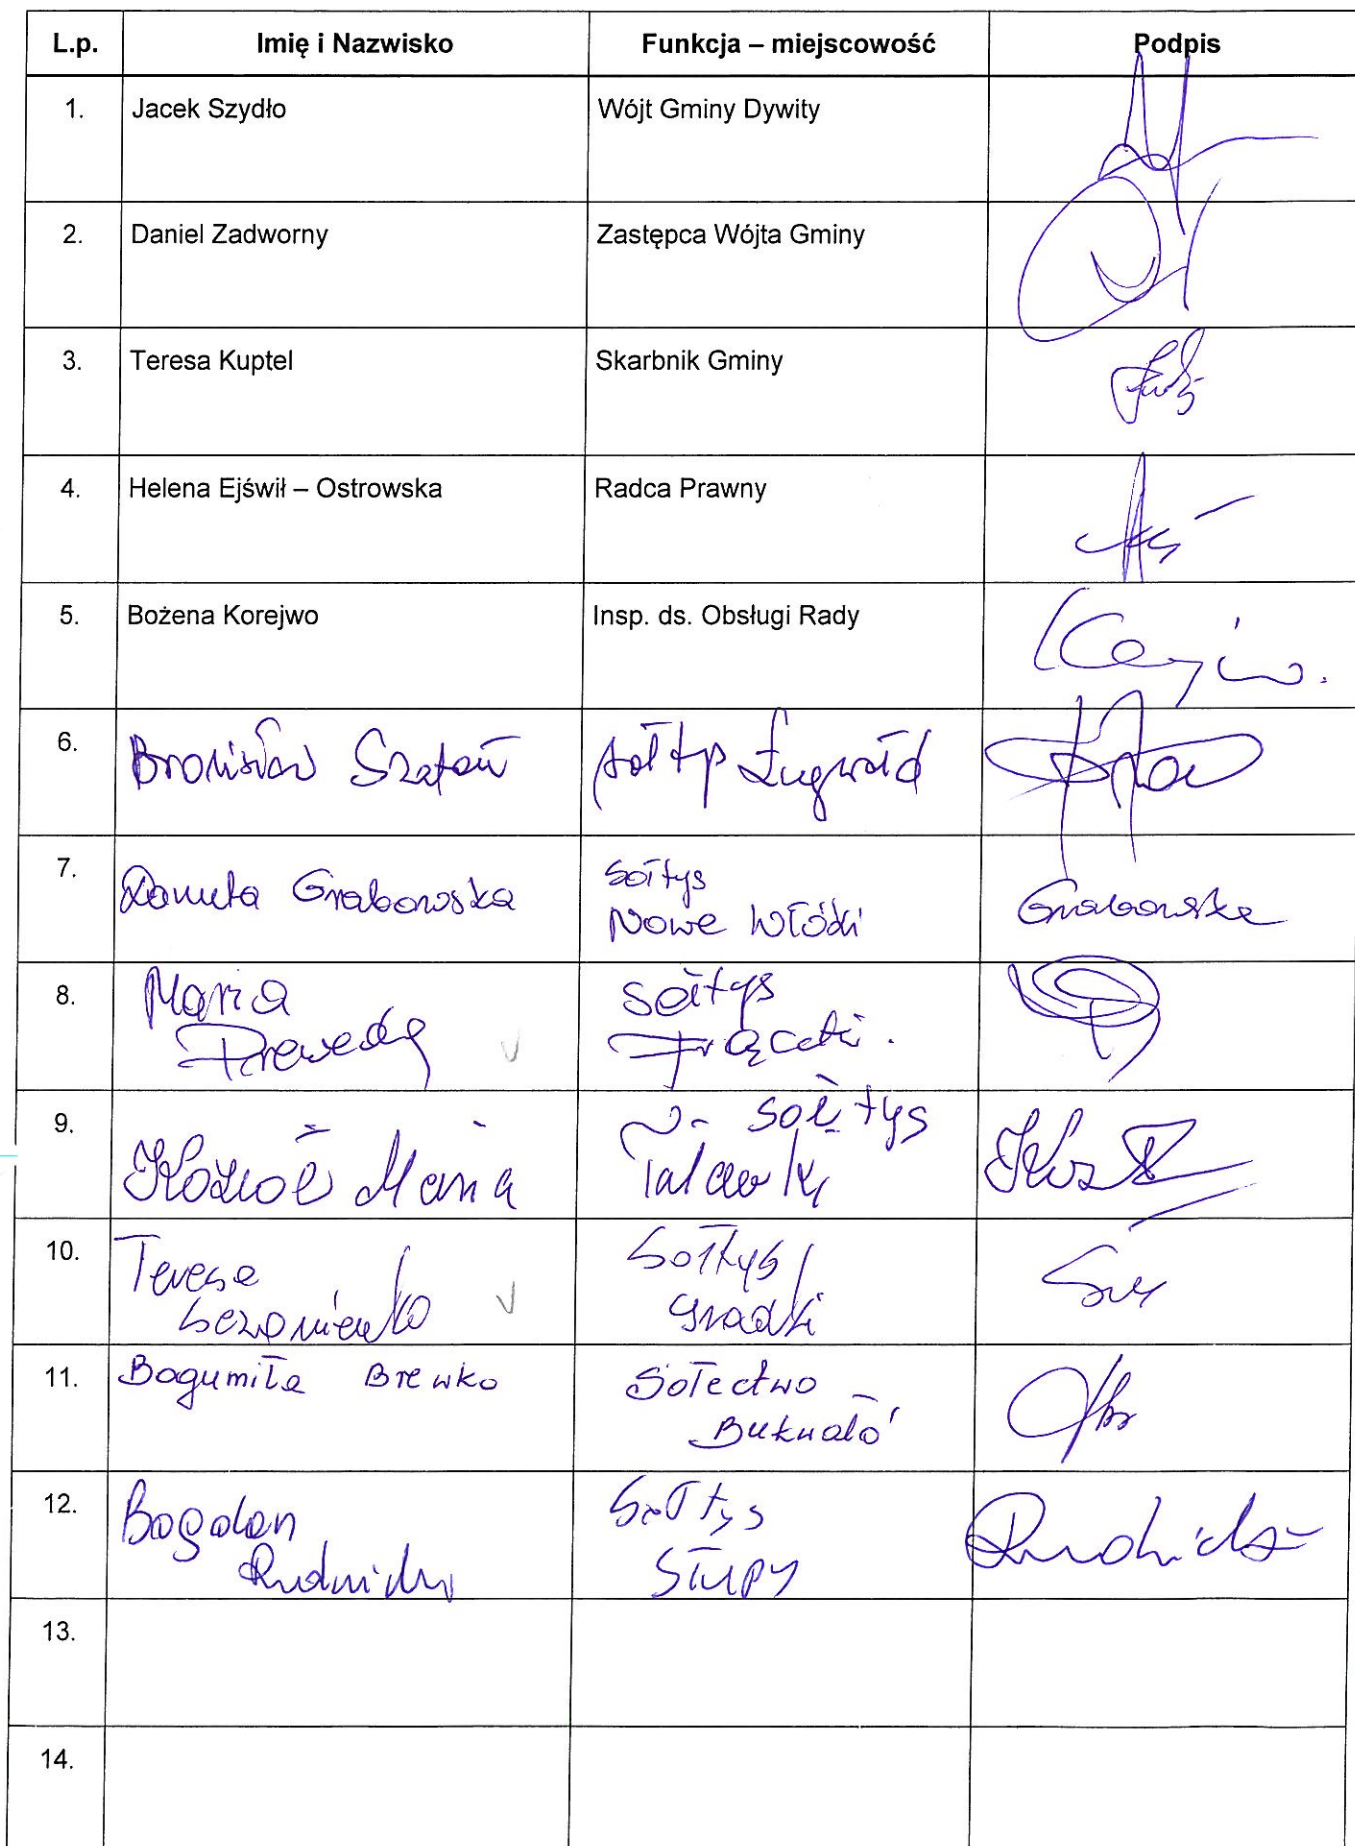 L.p. Imię i Nazwisko Funkcja – miejscowość Podpis
1. Jacek Szydło Wójt Gminy Dywity
2. Daniel Zadworny Zastępca Wójta Gminy
3. Teresa Kuptel Skarbnik Gminy
4. Helena Ejświł – Ostrowska Radca Prawny
5. Bożena Korejwo Insp. ds. Obsługi Rady
6. Bronisław Szatan sołtys Ługwałd
7. Danuta Grabowska Sołtys Grabowska
Nowe Włóki
8. Maria Sołtys
Frączki.
9. Kozioł Maria Sołtys
Tuławki
10. Teresa Sołtys
Gradki
11. Bogumiła Brewko Sołectwo
Bukwałd
12. Bogdan Sołtys Rudnicki
Rudnicki Sługy
13.
14.